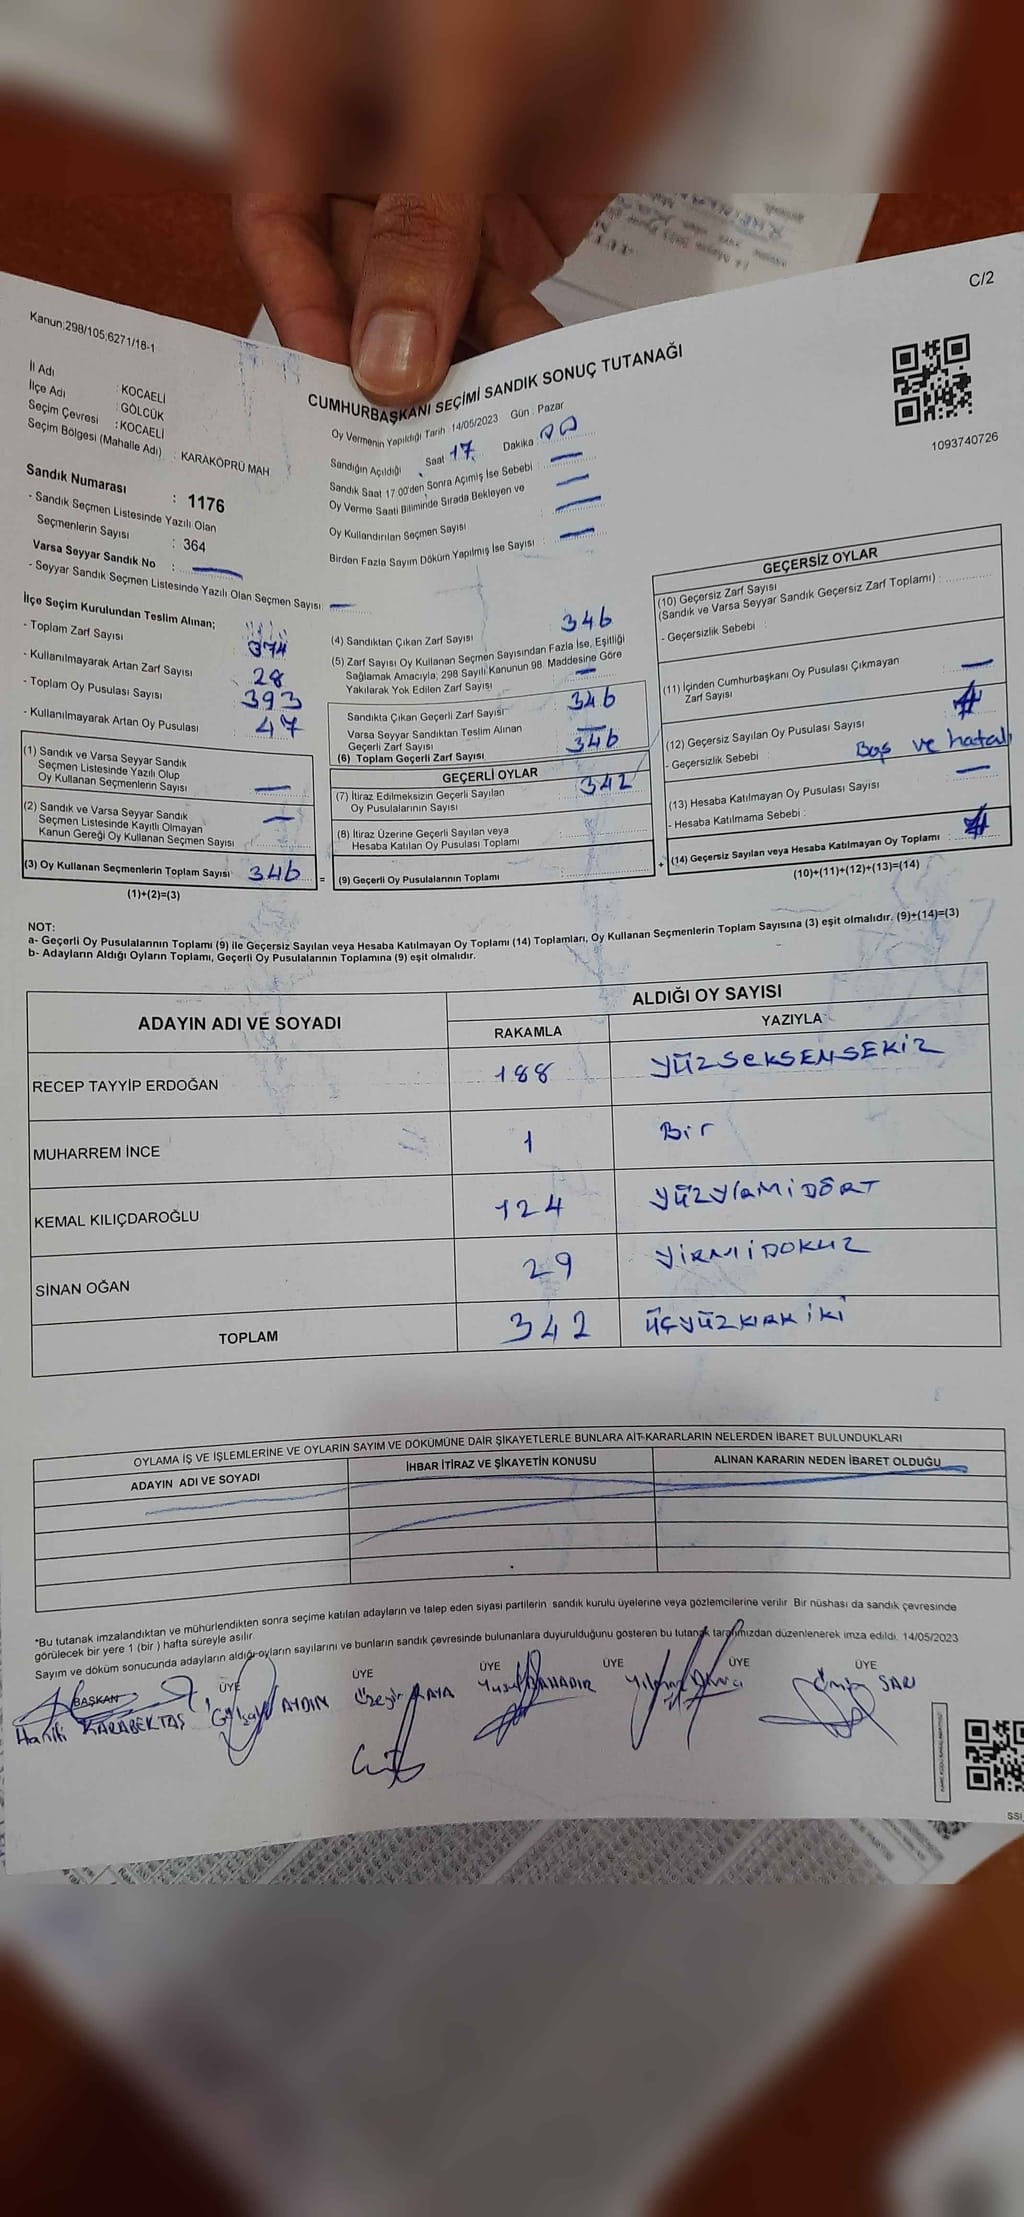 C/2
Kanun:298/105;6271/18-1
İl Adı : KOCAELİ
İlçe Adı : GÖLCÜK
Seçim Çevresi : KOCAELİ
Seçim Bölgesi (Mahalle Adı) : KARAKÖPRÜ MAH
CUMHURBAŞKANI SEÇİMİ SANDIK SONUÇ TUTANAĞI
1093740726
Oy Vermenin Yapıldığı Tarih 14/05/2023 Gün : Pazar
Sandığın Açıldığı Saat 17 Dakika 00
Sandık Saat 17 00'den Sonra Açımış İse Sebebi : —
Oy Verme Saati Bitiminde Sırada Bekleyen ve —
Oy Kullandırılan Seçmen Sayısı : —
Birden Fazla Sayım Döküm Yapılmış İse Sayısı : —
Sandık Numarası : 1176
- Sandık Seçmen Listesinde Yazılı Olan
Seçmenlerin Sayısı : 364
Varsa Seyyar Sandık No : —
- Seyyar Sandık Seçmen Listesinde Yazılı Olan Seçmen Sayısı : —
İlçe Seçim Kurulundan Teslim Alınan;
- Toplam Zarf Sayısı 374
- Kullanılmayarak Artan Zarf Sayısı 28
- Toplam Oy Pusulası Sayısı 393
- Kullanılmayarak Artan Oy Pusulası 47
(1) Sandık ve Varsa Seyyar Sandık
Seçmen Listesinde Yazılı Olup
Oy Kullanan Seçmenlerin Sayısı —
(2) Sandık ve Varsa Seyyar Sandık
Seçmen Listesinde Kayıtlı Olmayan
Kanun Gereği Oy Kullanan Seçmen Sayısı —
(3) Oy Kullanan Seçmenlerin Toplam Sayısı 346 =
(1)+(2)=(3)
(4) Sandıktan Çıkan Zarf Sayısı 346
(5) Zarf Sayısı Oy Kullanan Seçmen Sayısından Fazla İse, Eşitliği
Sağlamak Amacıyla, 298 Sayılı Kanunun 98. Maddesine Göre
Yakılarak Yok Edilen Zarf Sayısı —
Sandıkta Çıkan Geçerli Zarf Sayısı 346
Varsa Seyyar Sandıktan Teslim Alınan
Geçerli Zarf Sayısı —
(6) Toplam Geçerli Zarf Sayısı 346
GEÇERLİ OYLAR
(7) İtiraz Edilmeksizin Geçerli Sayılan
Oy Pusulalarının Sayısı 342
(8) İtiraz Üzerine Geçerli Sayılan veya
Hesaba Katılan Oy Pusulası Toplamı
(9) Geçerli Oy Pusulalarının Toplamı +
GEÇERSİZ OYLAR
(10) Geçersiz Zarf Sayısı
(Sandık ve Varsa Seyyar Sandık Geçersiz Zarf Toplamı) :
- Geçersizlik Sebebi :
(11) İçinden Cumhurbaşkanı Oy Pusulası Çıkmayan
Zarf Sayısı —
(12) Geçersiz Sayılan Oy Pusulası Sayısı
- Geçersizlik Sebebi : Boş ve hatalı
(13) Hesaba Katılmayan Oy Pusulası Sayısı —
- Hesaba Katılmama Sebebi :
(14) Geçersiz Sayılan veya Hesaba Katılmayan Oy Toplamı
(10)+(11)+(12)+(13)=(14)
NOT:
a- Geçerli Oy Pusulalarının Toplamı (9) ile Geçersiz Sayılan veya Hesaba Katılmayan Oy Toplamı (14) Toplamları, Oy Kullanan Seçmenlerin Toplam Sayısına (3) eşit olmalıdır. (9)+(14)=(3)
b- Adayların Aldığı Oyların Toplamı, Geçerli Oy Pusulalarının Toplamına (9) eşit olmalıdır.
ADAYIN ADI VE SOYADI ALDIĞI OY SAYISI
RAKAMLA YAZIYLA
RECEP TAYYİP ERDOĞAN 188 YÜZSEKSENSEKİZ
MUHARREM İNCE 1 Bir
KEMAL KILIÇDAROĞLU 124 YÜZYİRMİDÖRT
SİNAN OĞAN 29 YİRMİDOKUZ
TOPLAM 342 ÜÇYÜZKIRKİKİ
OYLAMA İŞ VE İŞLEMLERİNE VE OYLARIN SAYIM VE DÖKÜMÜNE DAİR ŞİKAYETLERLE BUNLARA AİT KARARLARIN NELERDEN İBARET BULUNDUKLARI
ADAYIN ADI VE SOYADI İHBAR İTİRAZ VE ŞİKAYETİN KONUSU ALINAN KARARIN NEDEN İBARET OLDUĞU
*Bu tutanak imzalandıktan ve mühürlendikten sonra seçime katılan adayların ve talep eden siyasi partilerin sandık kurulu üyelerine veya gözlemcilerine verilir Bir nüshası da sandık çevresinde
görülecek bir yere 1 (bir ) hafta süreyle asılır.
Sayım ve döküm sonucunda adayların aldığı oyların sayılarını ve bunların sandık çevresinde bulunanlara duyurulduğunu gösteren bu tutanak tarafımızdan düzenlenerek imza edildi. 14/05/2023
BAŞKAN ÜYE ÜYE ÜYE ÜYE ÜYE ÜYE
KARABEKTAŞ AYDIN KAYA BAHADIR SARI
SSI